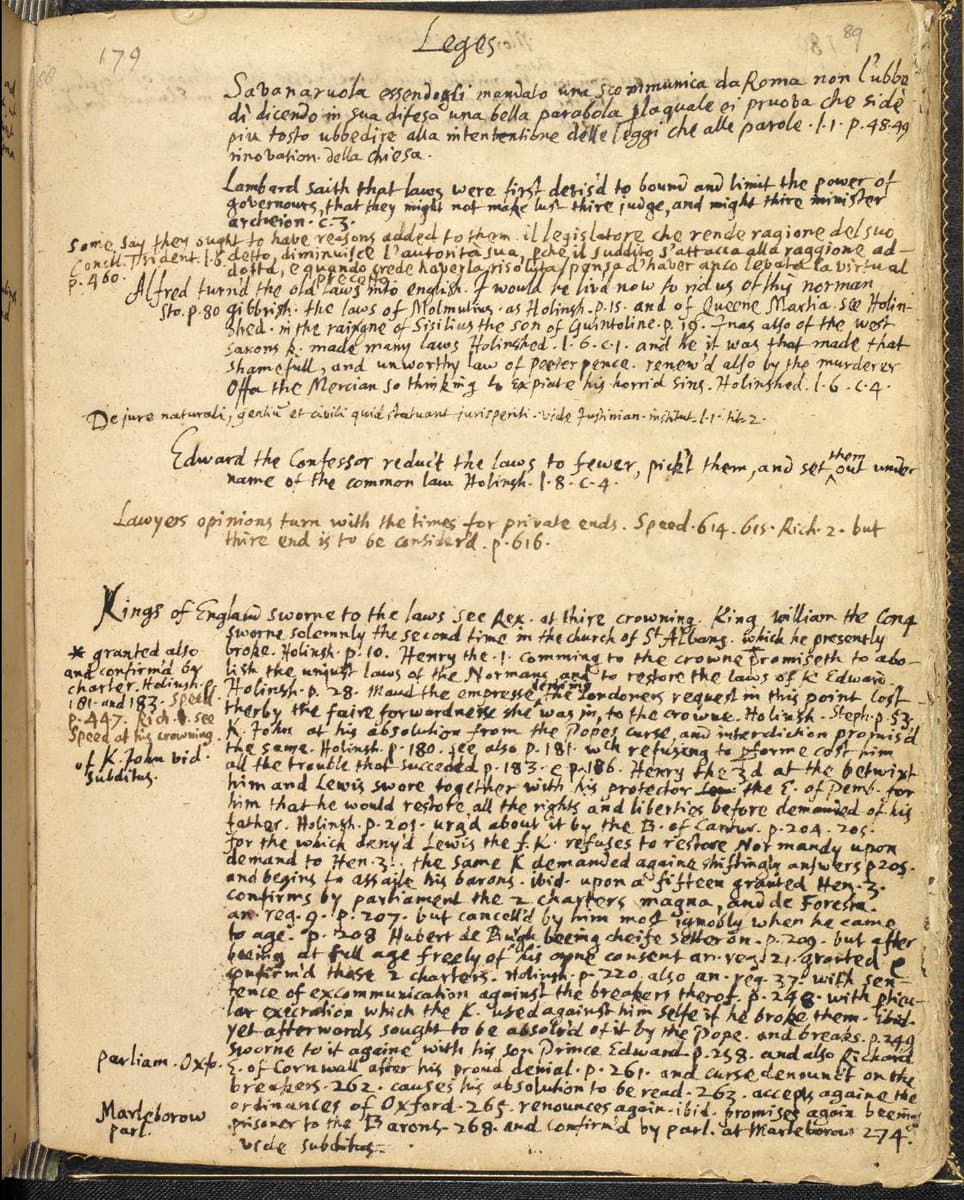 179
Leges
89
Savanaruola essendogli mandato una scommunica da Roma non l'ubbe
dì dicendo in sua difesa una bella parabola plaquale ei pruova che side
piu tosto ubbedire alla intentione delle leggi che alle parole. l. 1. p. 48. 49
rinovation. della chiesa.
Lambard saith that laws were first devis'd to bound and limit the power of
governours, that they might not make lust thire judge, and might thire minister
archeion. c. 3.
Some say they ought to have reasons added to them. il legislatore che rende ragione del suo
Concil. Trident. l. 6. detto, diminuisce l'autorità sua, pche il suddito s'attacca alla raggione ad-
p. 460. dotta, e quando crede haverla risoluta pensa d'haver anco levata la virtu al
precetto.
Alfred turn'd the old laws into english. I would he liv'd now to rid us of this norman
Sto. p. 80 gibbrish. the laws of Molmutius. as Holinsh. p. 15. and of Queene Martia. see Holin-
shed. in the raigne of Sisilius the son of Guintoline. p. 19. Inas also of the west
saxons k. made many laws Holinshed. l. 6. c. 1. and he it was that made that
shamefull, and unworthy law of Peeter pence. renew'd also by the murderer
Offa the Mercian so thinking to expiate his horrid sins. Holinshed. l. 6. c. 4.
De jure naturali, gentiū et civili quid statuant jurisperiti. vide Justinian. institut. l. 1. tit. 2.
them
Edward the Confessor reduc't the laws to fewer, pick't them, and set out under
name of the common law Holinsh. l. 8. c. 4.
Lawyers opinions turn with the times for private ends. Speed. 614. 615. Rich. 2. but
thire end is to be consider'd. p. 616.
Kings of England sworne to the laws see Rex. at thire crowning. King William the Conq
sworne solemnly the second time in the church of St Albans. which he presently
* granted also
and confirm'd by
charter. Holinsh. p.
181. and 183. Speed.
p. 447. Rich. 1. see
Speed at his crowning.
of K. John vid.
Subditus.
broke. Holinsh. p. 10. Henry the. 1. comming to the crowne promiseth to abo-
lish the unjust laws of the Normans, and to restore the laws of K. Edward.
Holinsh. p. 28. Maud the empresse denying the Londoners request in this point lost
therby the faire forwardnesse she was in, to the crowne. Holinsh. Steph. p. 53.
K. John at his absolution from the Popes curse, and interdiction promis'd
the same. Holinsh. p. 180. see also p. 181. wch refusing to pforme cost him
all the trouble that succeded p. 183. e p. 186. Henry the 3d at the betwixt
him and Lewis swore together with his protector the E. of Pemb. for
him that he would restore all the rights and liberties before demanded of his
father. Holinsh. p. 201. urg'd about it by the B. of Cantur. p. 204. 205.
for the which deny'd Lewis the f. K. refuses to restore Normandy upon
demand to Hen. 3. the same K demanded againe shiftingly answers p 205.
and begins to assaile his barons. ibid. upon a fifteen granted Hen. 3.
confirms by parliament the 2 charters magna, and de Foresta.
an. reg. 9. p. 207. but cancell'd by him most ignobly when he came
to age. p. 208 Hubert de Burgh beeing cheife setter on. p. 209. but after
beeing at full age freely of his owne consent an. reg. 21. granted e
confirm'd these 2 charters. Holinsh. p. 220. also an. reg. 37. with sen-
tence of excommunication against the breakers therof. p. 248. with pticu-
lar execration which the K. used against him selfe if he broke them. ibid.
yet afterwards sought to be absolv'd of it by the Pope. and breaks. p. 249
parliam. Oxfo. swoorne to it againe with his son Prince Edward. p. 258. and also Richard
E. of Cornwall after his proud denial. p. 261. and curse denounc't on the
breakers. 262. causes his absolution to be read. 263. accepts againe the
Marleborow
parl.
ordinances of Oxford. 265. renounces again. ibid. promises again beeing
prisoner to the Barons. 268. and confirm'd by parl. at Marleborow 274.
vide subditus.